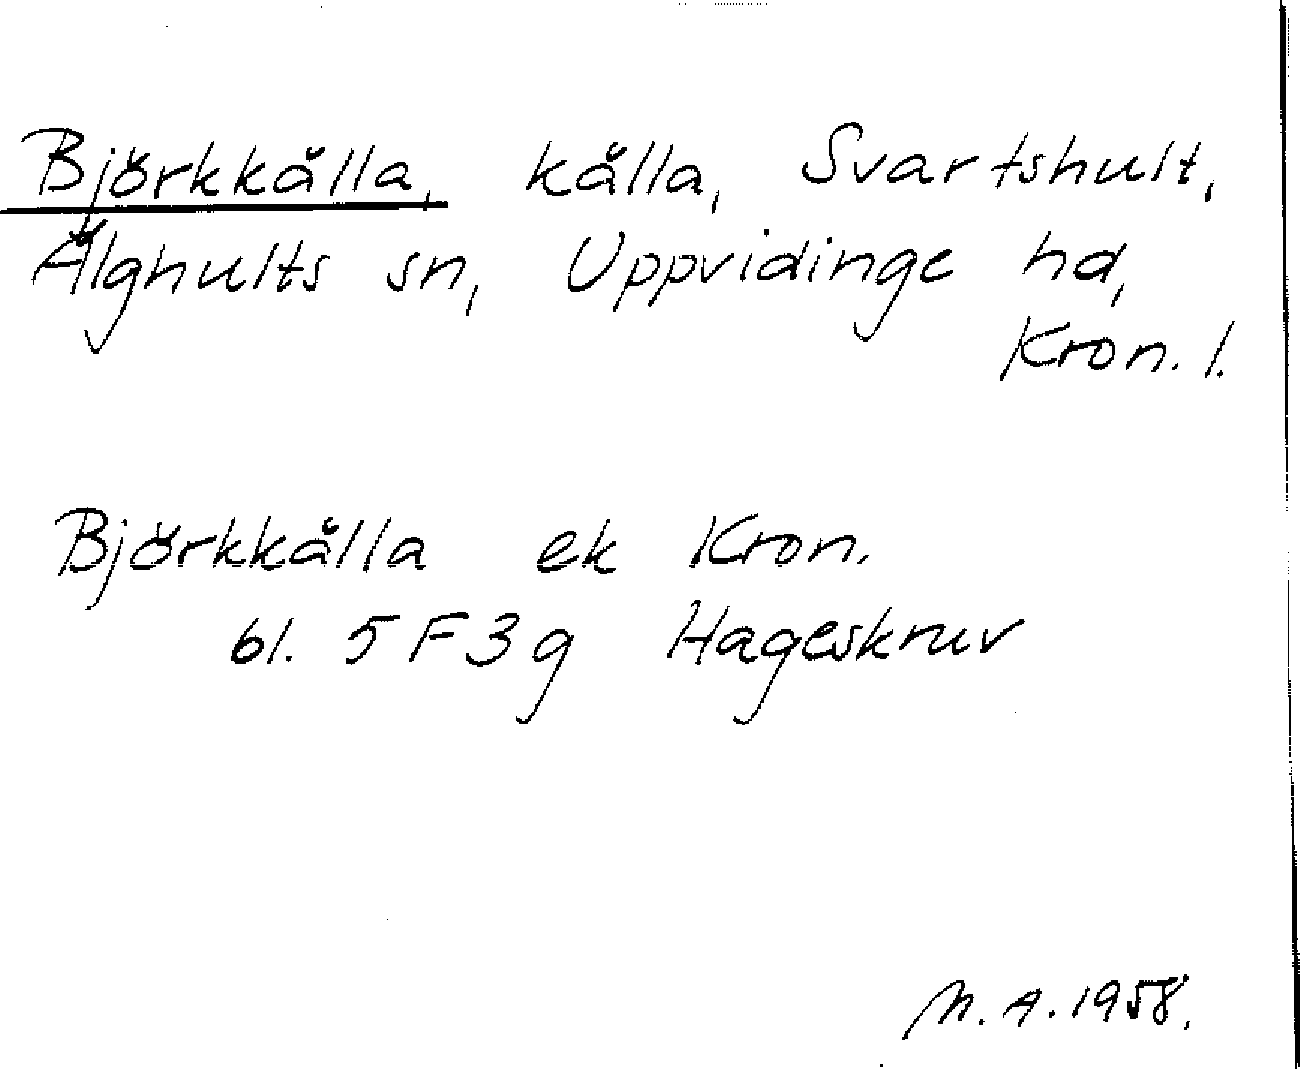 Björkkälla, källa, Svartshult,
Älghults sn, Uppvidinge hd,
Kron. l.
Björkkälla ek Kron.
bl. 5F3g Hageskruv
M. A. 1958.